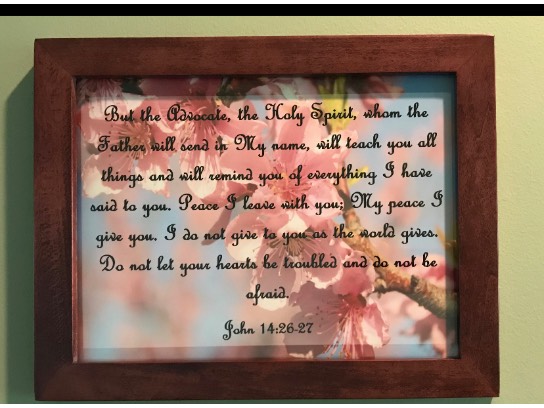 But the Advocate, the Holy Spirit, whom the
Father will send in My name, will teach you all
things and will remind you of everything I have
said to you. Peace I leave with you; My peace I
give you. I do not give to you as the world gives.
Do not let your hearts be troubled and do not be
afraid.
John 14:26-27